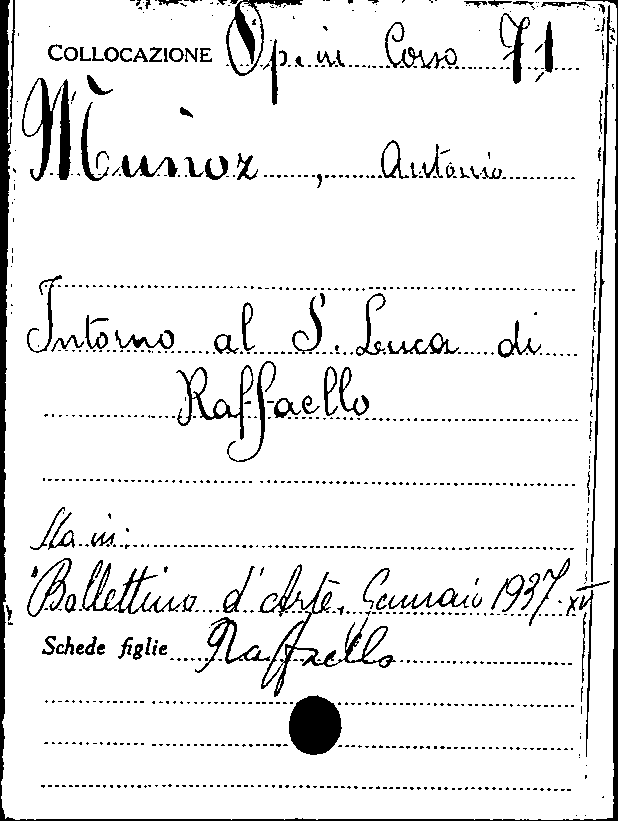 COLLOCAZIONE Op. in Corso 71
Muñoz, Antonio
Intorno al S. Luca di
Raffaello
Sta in:
"Bollettino d'Arte, Gennaio 1937-XV
Schede figlie Raffaello